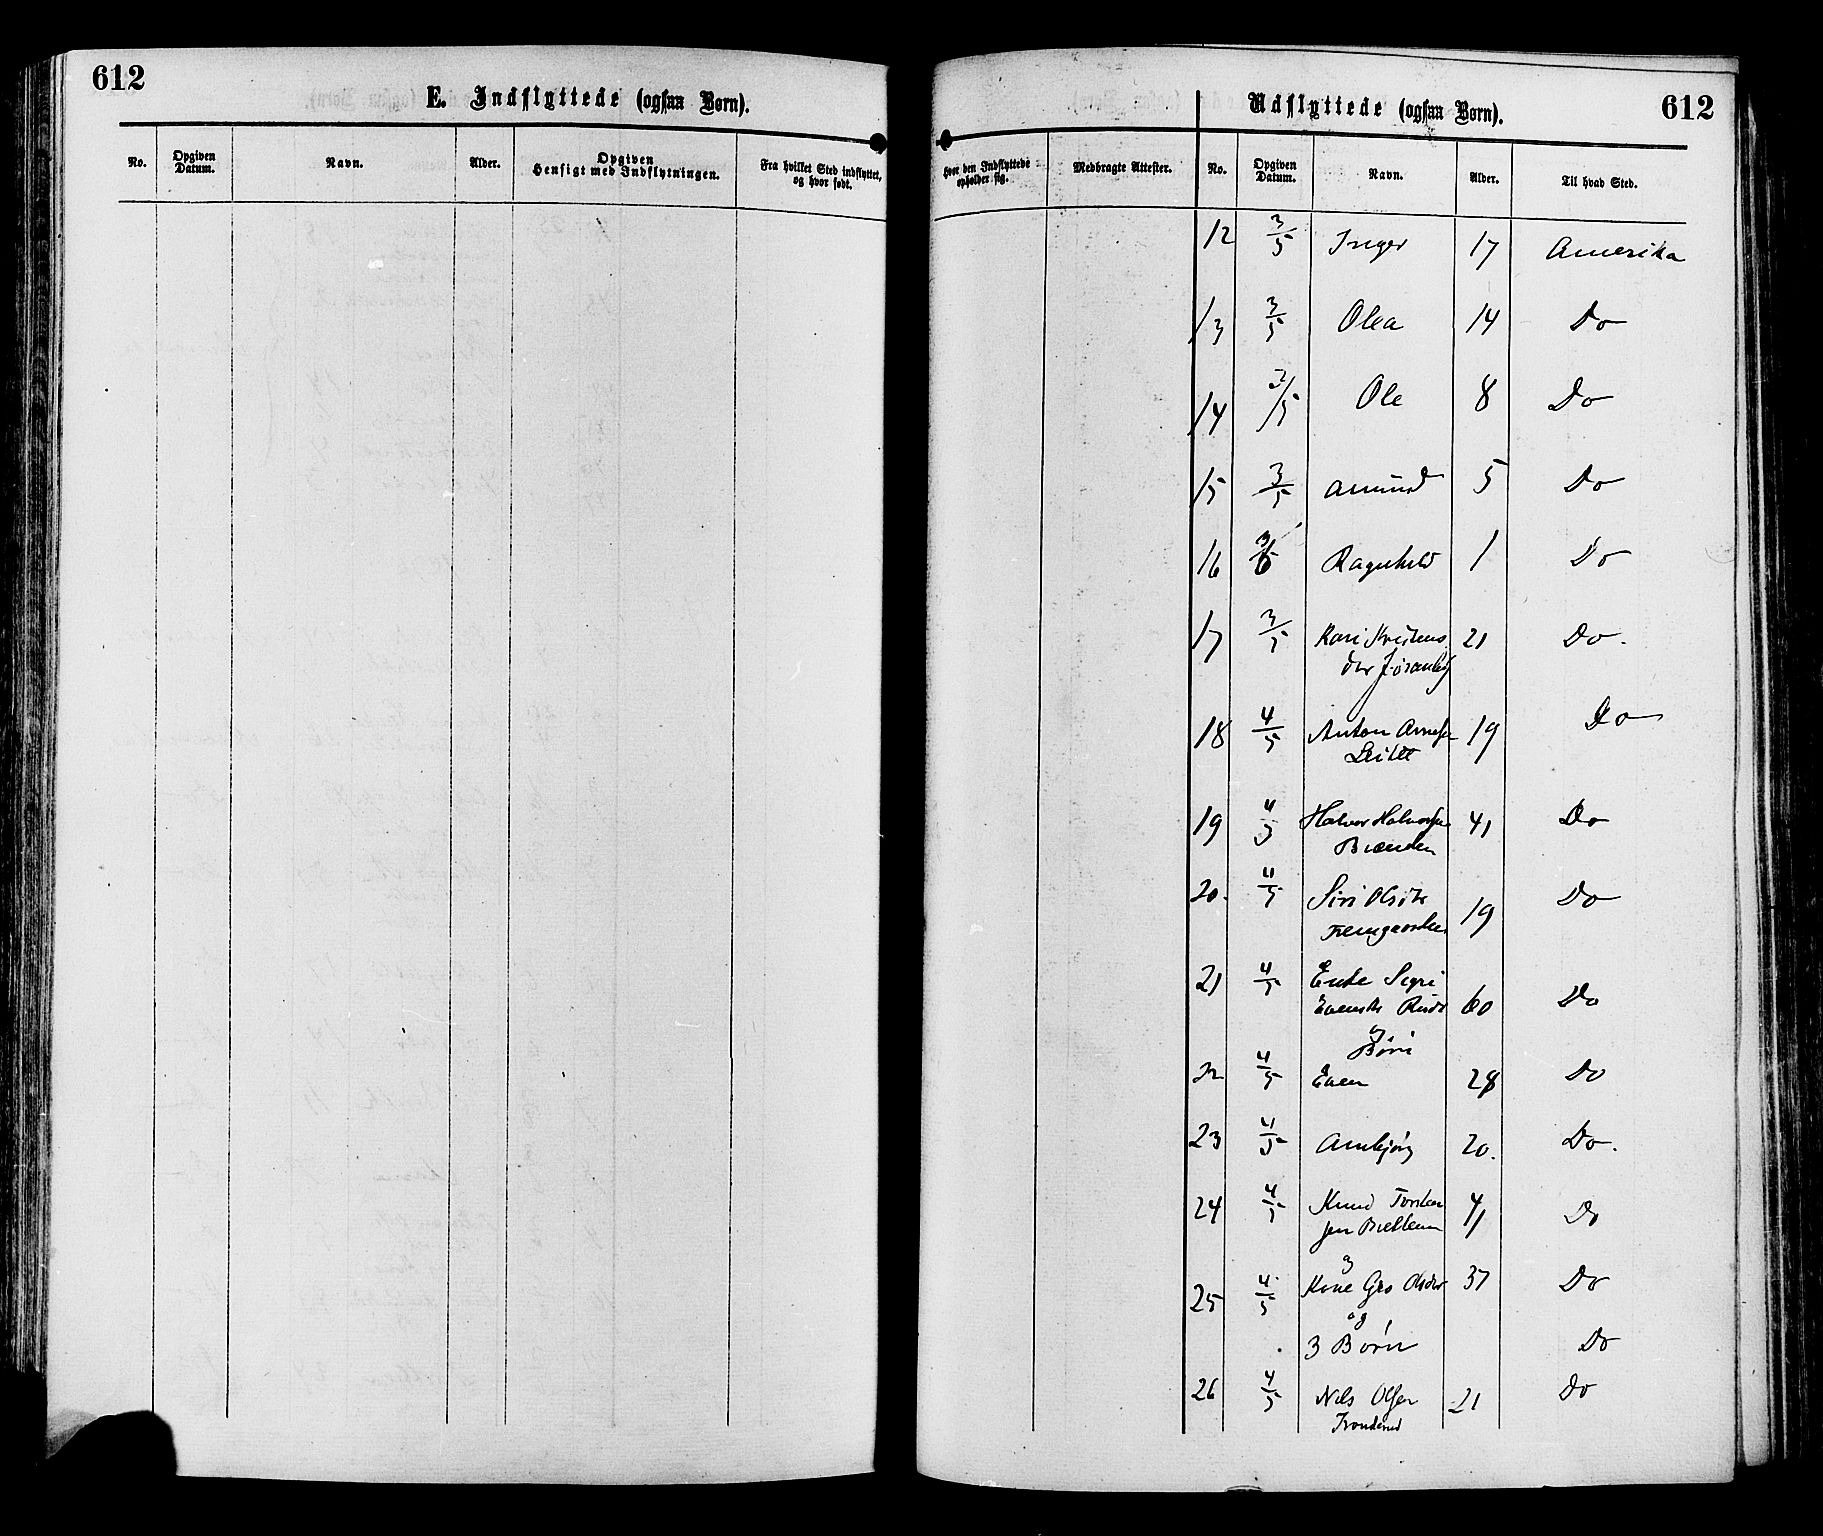 612
E. Indflyttede (ogsaa Børn).
No.
Opgiven Datum.
Navn.
Alder.
Opgiven Hensigt med Indflytningen.
Fra hvilket Sted indflyttet, og hvor født.
Udflyttede (ogsaa Børn).
612
Hvor den Indflyttede opholder sig.
Medbragte Attester.
No.
Opgiven Datum.
Navn.
Alder.
Til hvad Sted.
12 3/5 Inger 17 Amerika
13 3/5 Olea 14 Do
14 3/5 Ole 8 Do
15 3/5 Amund 5 Do
16 3/5 Ragnhild 1 Do
17 3/5 Kari 21 Do.
18 4/5 Anton Arnesen 19 Do
19 4/5 Halvor Halvorsen 41 Do
Brænden
20. 4/5 Siri Olsdtr 19 Do
21 4/5 Enke Sigri
Evensdtr Rud 60 Do
og
Børn
22 4/5 Even 28 Do
23 4/5 Arnbjørg 20. Do.
24 4/5 Knud Torsten 41 Do
sen
og
25 4/5 Kone Gro Olsdtr 37 Do
og
3 Børn Do
26 4/5 Nils Olsen 21 Do
Tronderud